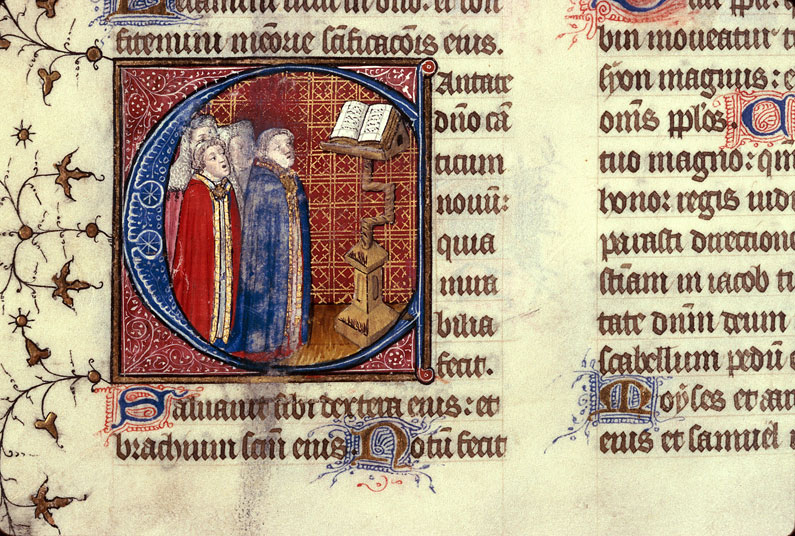 Letamini iusti in dno. et con
fitemini meorie scificacois eius.
Cantate
dño cã
ticum
nouũ:
quia
mira
bilia
fecit.
Saluauit sibi dextera eius: et
brachium scm̃ eius. Notũ fecit
bin moueatur t
syon magnus: e
om̃s ppl̃os. C
tuo magno: qm̃
honor regis iudi
parasti directione
stiam in iacob tu
tate dnm̃ deum
scabellum pedũ e
Moyses et aar
eius et samuel i